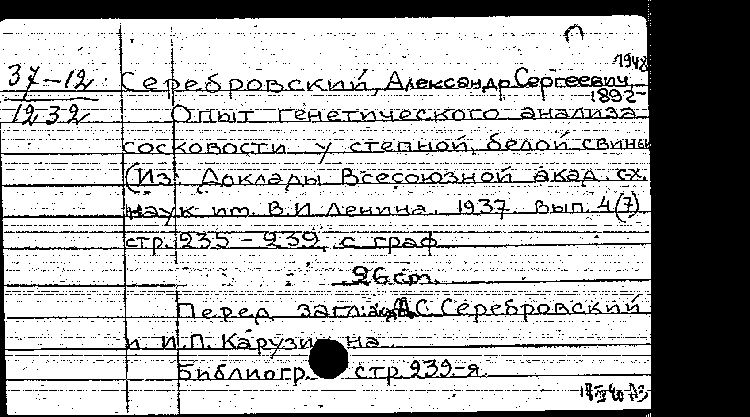 1948
37-12 Серебровский, Александр Сергеевич
1892-
1232 Опыт генетического анализа
сосковости у степной, белой свиньи
(Из: Доклады Всесоюзной акад. сх.
наук им. В.И Ленина. 1937. вып. 4(7)
стр. 235 - 239, с граф
26 cm.
Перед загл: А.С. Серебровский
и И.П. Карузи на
Библиогр. стр 239-я